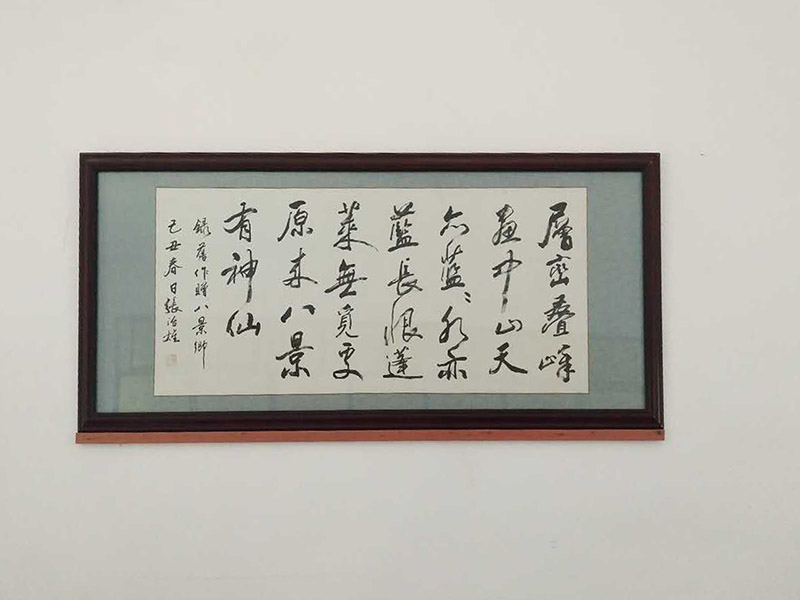 層巒疊峰
畫中山天
亦藍〻水亦
藍長恨蓬
萊無覓處
原來八景
有神仙
錄舊作贈八景鄉
己丑春日張治雄